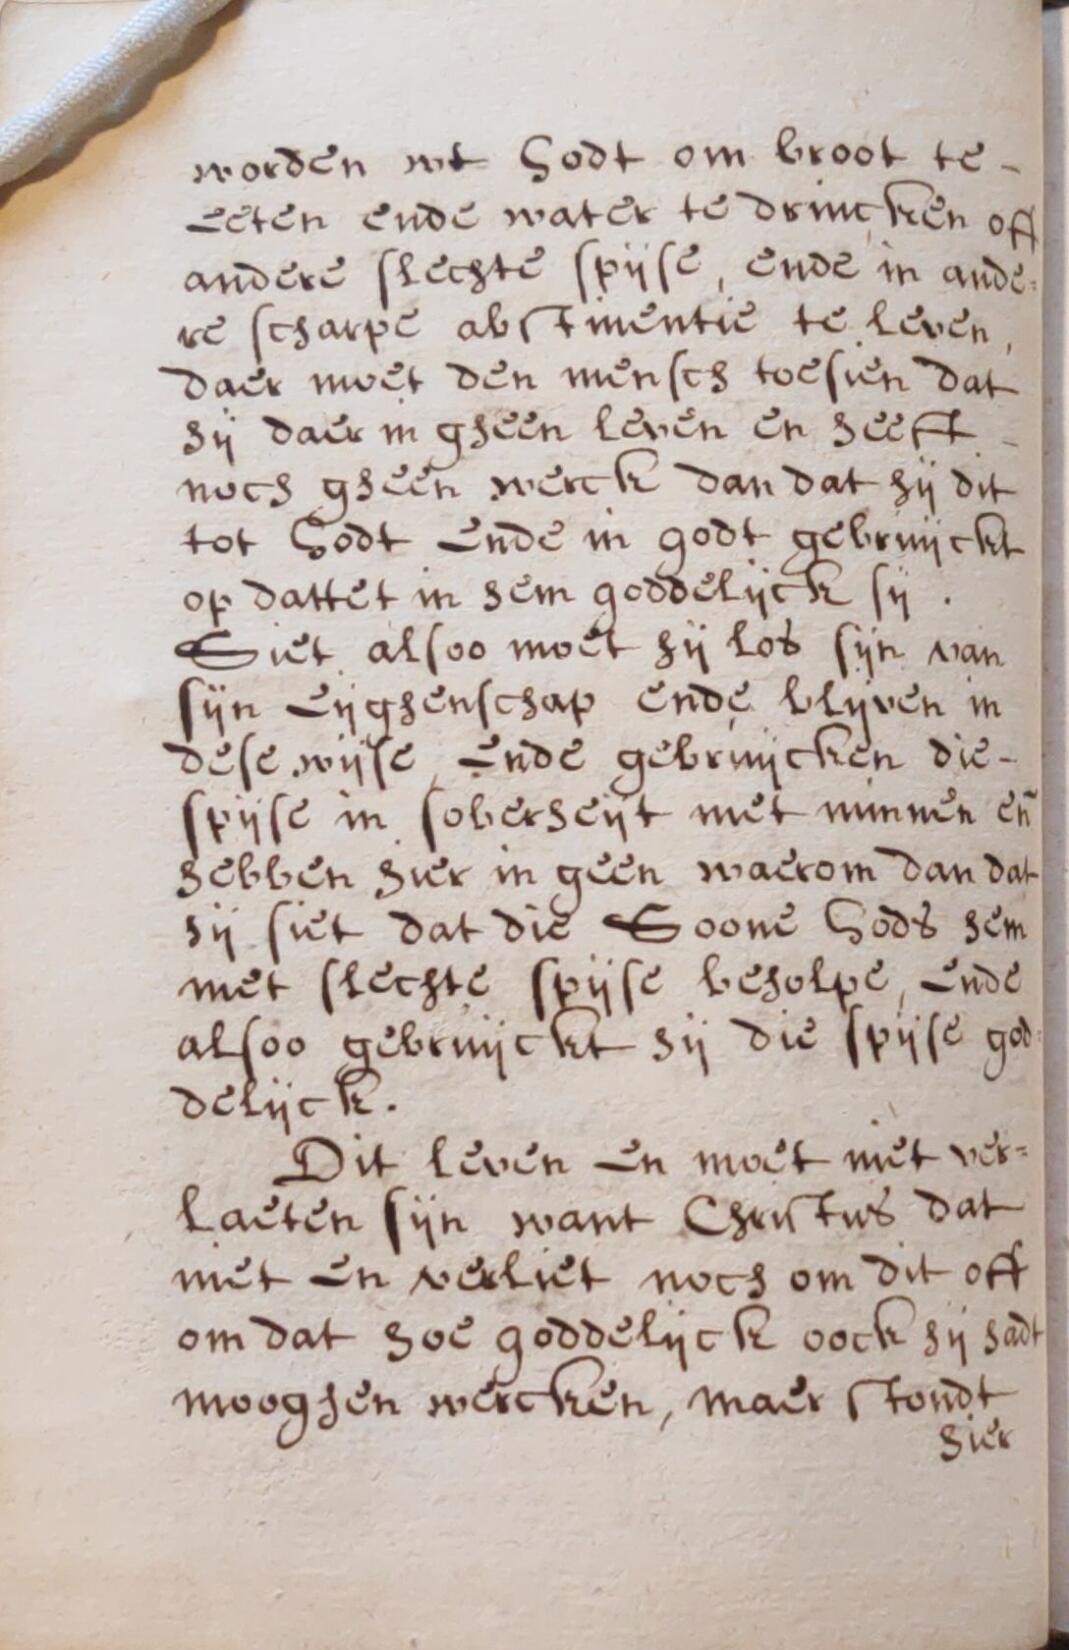 worden wt Godt om broot te-
eeten ende water te drincken off
andere slechte spijse, ende in ande:
re scharpe abstinentie te leven,
daer moet den mensch toesien dat
hij daer in gheen leven en heeft -
noch gheen werck dan dat hij dit
tot Godt ende in godt gebruijckt
op dattet in hem goddelijck sij.
Siet alsoo moet hij los sijn van
sijn eijghenschap ende blijven in
dese wijse, ende gebruijcken die-
spijse in soberheijt met minnen en̄
hebben hier in geen waerom dan dat
hij siet dat die Soone Gods hem
met slechte spijse beholpe, ende
alsoo gebruijckt hij die spijse god:
delijck.
Dit leven en moet niet ver=
laeten sijn want Christus dat
niet en verliet noch om dit off
om dat hoe goddelijck oock hij hadt
mooghen wercken, maer stondt
hier